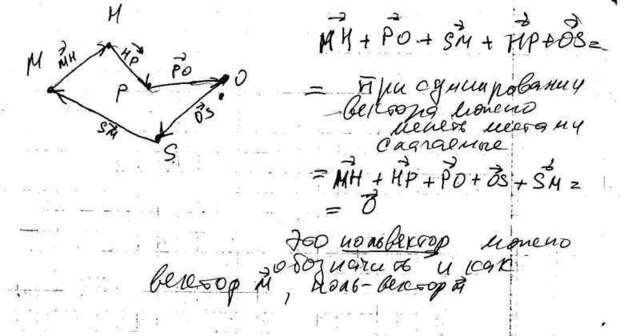 H
M
MH
HP
PO
P
O
OS
SM
S
MH + PO + SM + HP + OS =
= При суммировании
вектора можно
менять местами
слагаемые
= MH + HP + PO + OS + SM =
= O
Это ноль вектор можно
обозначить и как
вектор M, ноль-вектор